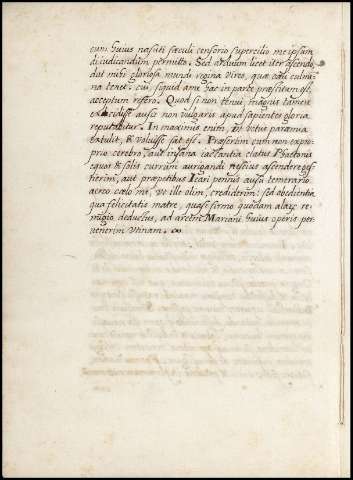 cum huius nasuti sæculi censorio supercilio me ipsum
dijudicandum permitto. Sed arduum licet iter ascendo,
dat mihi gloriosa mundi regina vires, quæ cæli culmi-
na tenet. cui, siquid am hac in parte præstitum est,
acceptum refero. Quod si non tenui, magnis tamen
excidisse ausis non vulgaris apud sapientes gloria
reputabitur. In maximis enim, ut vetus parœmia
extulit, & voluisse sat est. Præsertim cum non ex pro-
prio cerebro, aut insana iactantia elatus Phaetonis
equos & solis currum aurigandi nescius ascendere ges-
tierim, aut præpetibus Icari pennis ausu temerario
aereo cælo me, ut ille olim, crediderim: sed obedientia
qua felicitatis matre, quasi firmo quodam alarum re-
migio deductus, ad arcem Mariani huius operis per-
venerim Utinam.